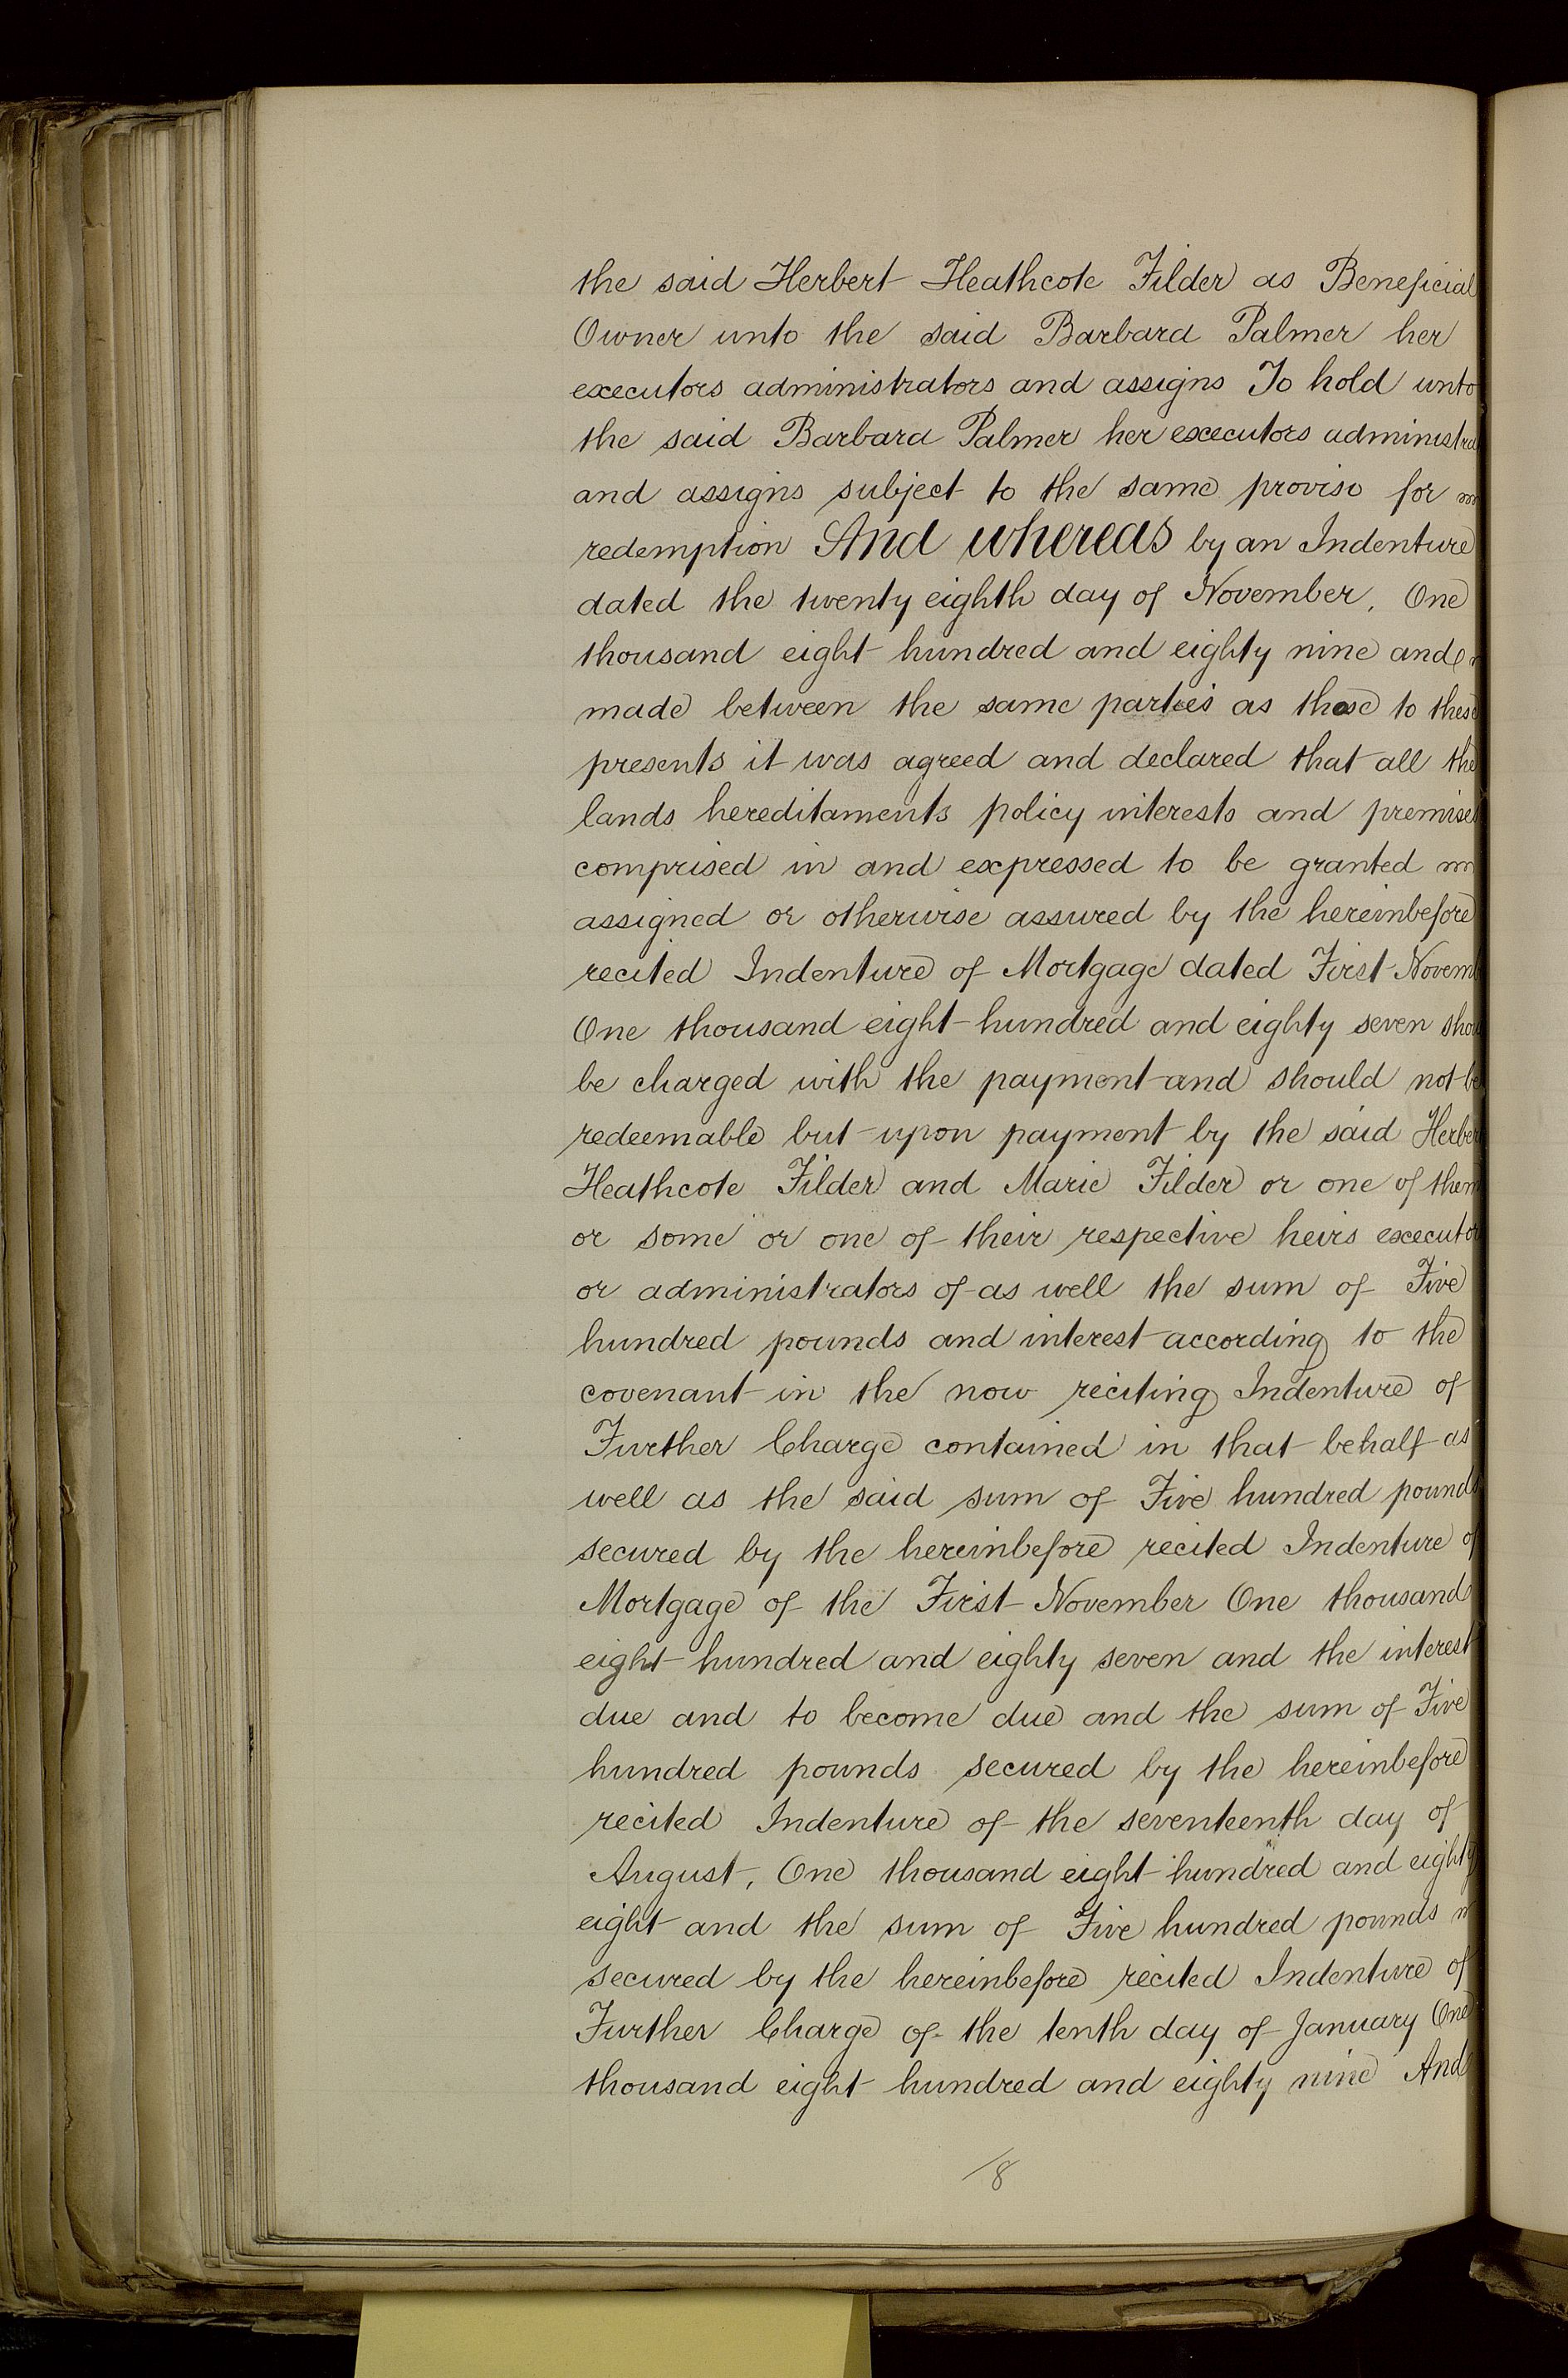 the said Herbert Heathcote Filder as Beneficial
Owner unto the said Barbara Palmer her
executors administrators and assigns To hold unto
the said Barbara Palmer her executors administra
and assigns subject to the same proviso for
redemption And whereas by an Indenture
dated the twenty eighth day of November, One
thousand eight hundred and eighty nine and
made between the same parties as those to these
presents it was agreed and declared that all the
lands hereditaments policy interests and premises
comprised in and expressed to be granted
assigned or otherwise assured by the hereinbefore
recited Indenture of Mortgage dated First Novem
One thousand eight hundred and eighty seven shou
be charged with the payment and should not be
redeemable but upon payment by the said Herber
Heathcote Filder and Marie Filder or one of them
or some or one of their respective heirs executor
or administrators of as well the sum of Five
hundred pounds and interest according to the
covenant in the now reciting Indenture of
Further Charge contained in that behalf as
well as the said sum of Five hundred pounds
secured by the hereinbefore recited Indenture of
Mortgage of the First November One thousand
eight hundred and eighty seven and the interest
due and to become due and the sum of Five
hundred pounds secured by the hereinbefore
recited Indenture of the seventeenth day of
August, One thousand eight hundred and eighty
eight and the sum of Five hundred pounds
secured by the hereinbefore recited Indenture of
Further Charge of the tenth day of January One
thousand eight hundred and eighty nine And
/8